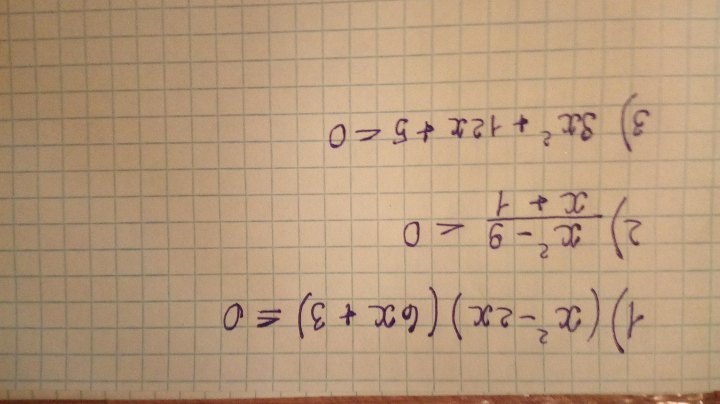 1) (x² - 2x)(6x + 3) ≥ 0
2) x² - 9 / x + 1 > 0
3) 3x² + 12x + 5 = 0